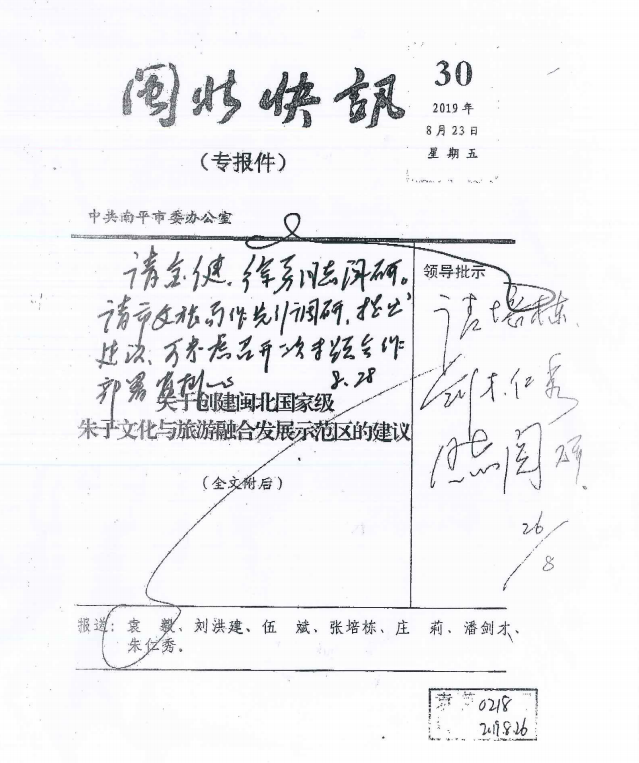 闽北快讯
30
2019年
8月23日
星期五
（专报件）
中共南平市委办公室
请金健、徐勇同志阅研。
请市文旅局作先行调研，提出
建议，
部署
8.28
关于创建闽北国家级
朱子文化与旅游融合发展示范区的建议
（全文附后）
领导批示
请培栋、
剑才、仁秀
同志阅研。
26/8
报送：袁　毅、刘洪建、伍　斌、张培栋、庄　莉、潘剑才、
朱仁秀。
0218
2019.8.26